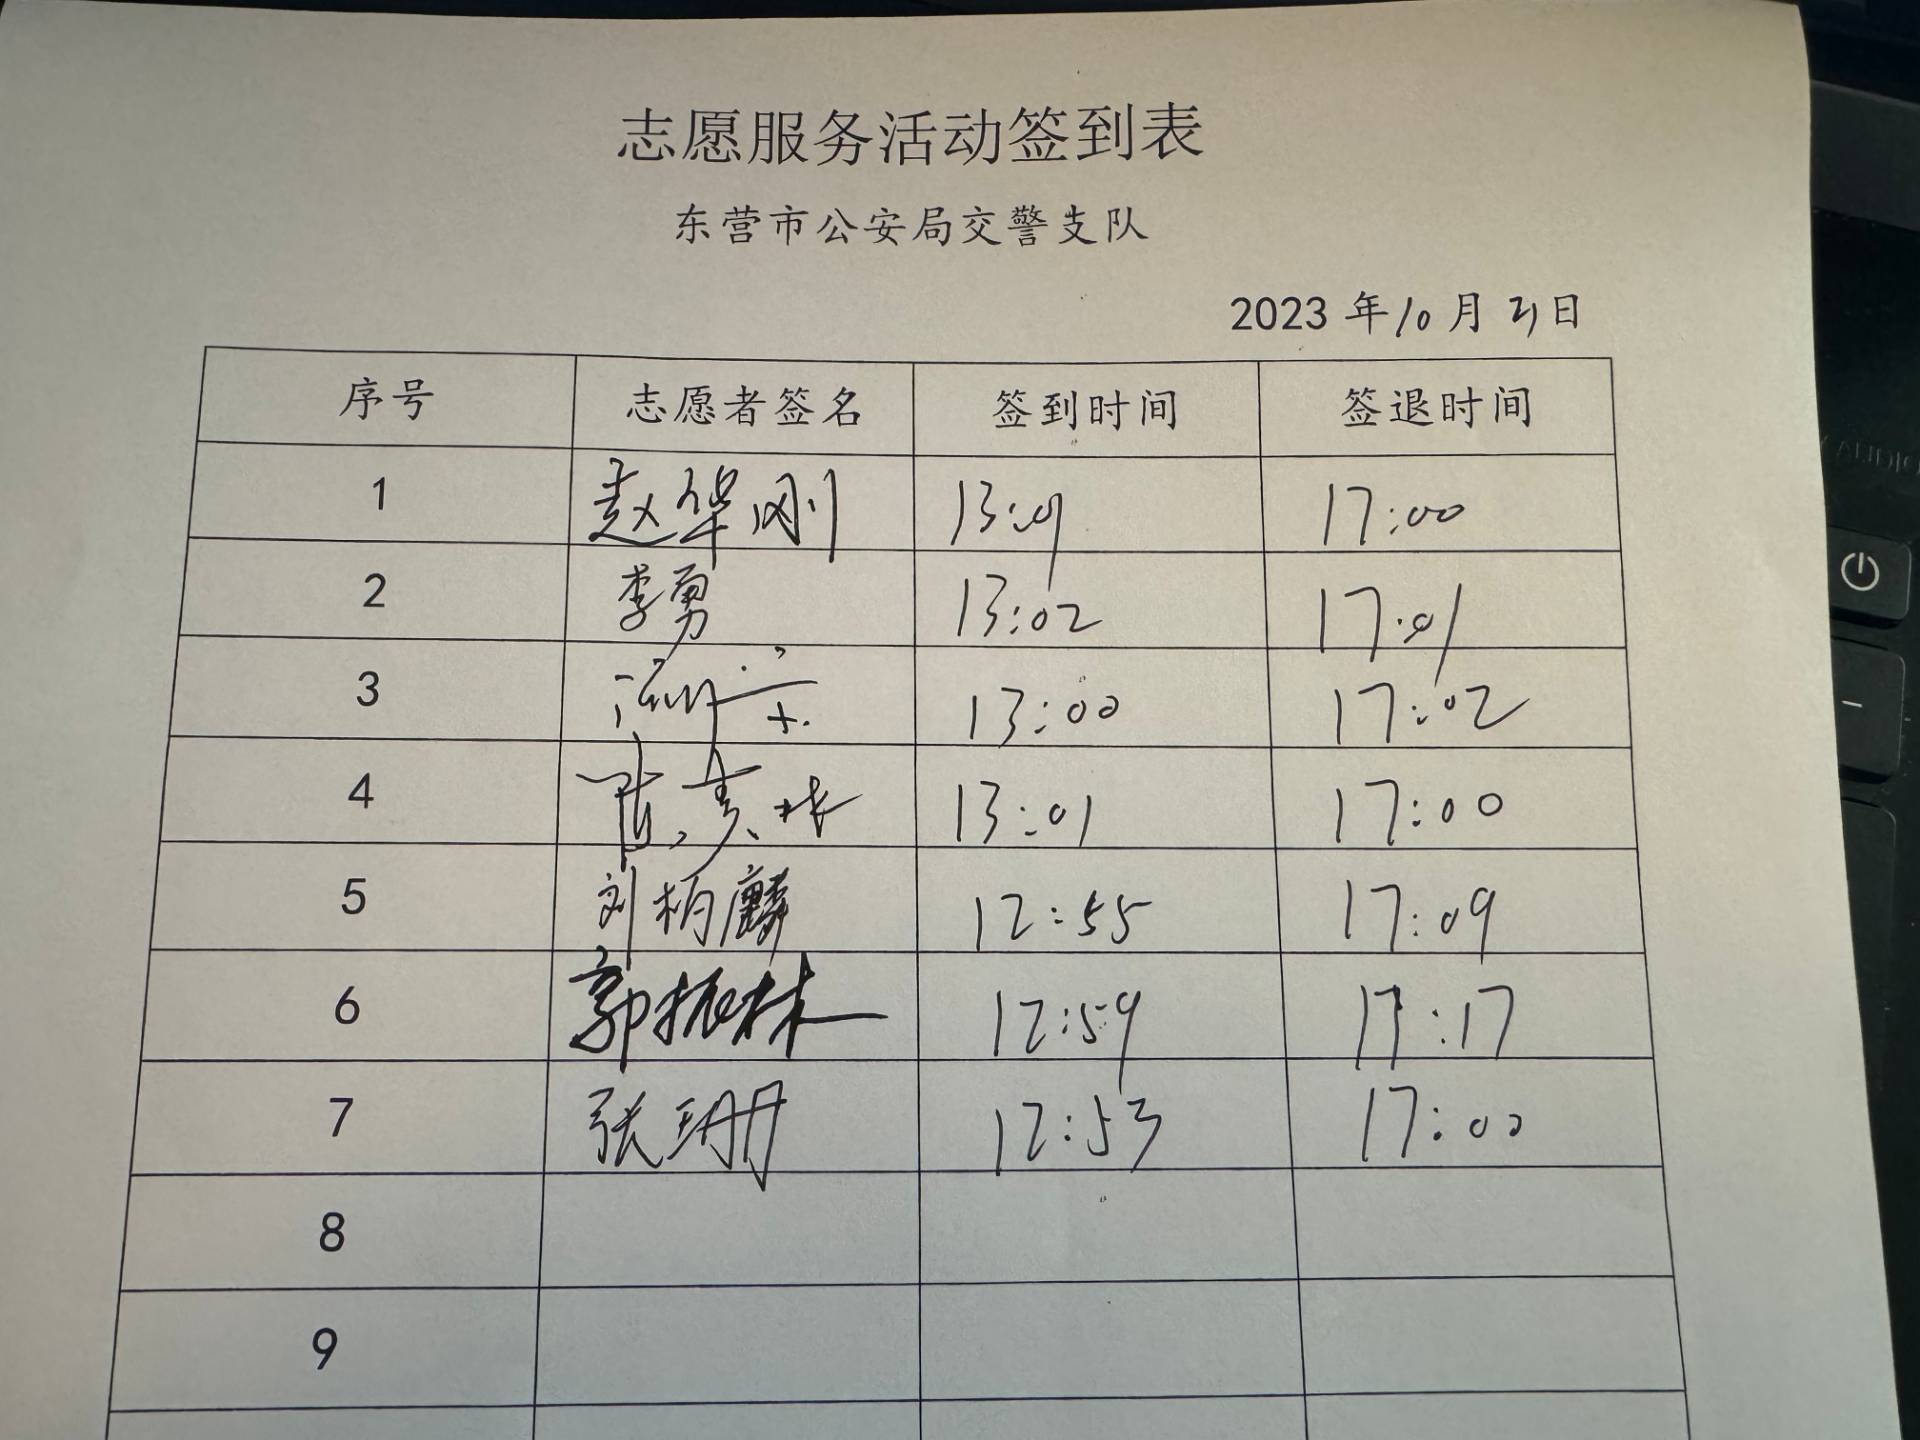 志愿服务活动签到表
东营市公安局交警支队
2023 年 10 月 21 日
序号 志愿者签名 签到时间 签退时间
1 赵华刚 13:01 17:00
2 李勇 13:02 17:01
3 13:00 17:02
4 13:01 17:00
5 刘柏麟 12:55 17:09
6 郭振林 12:59 17:17
7 张珊 12:53 17:00
8
9